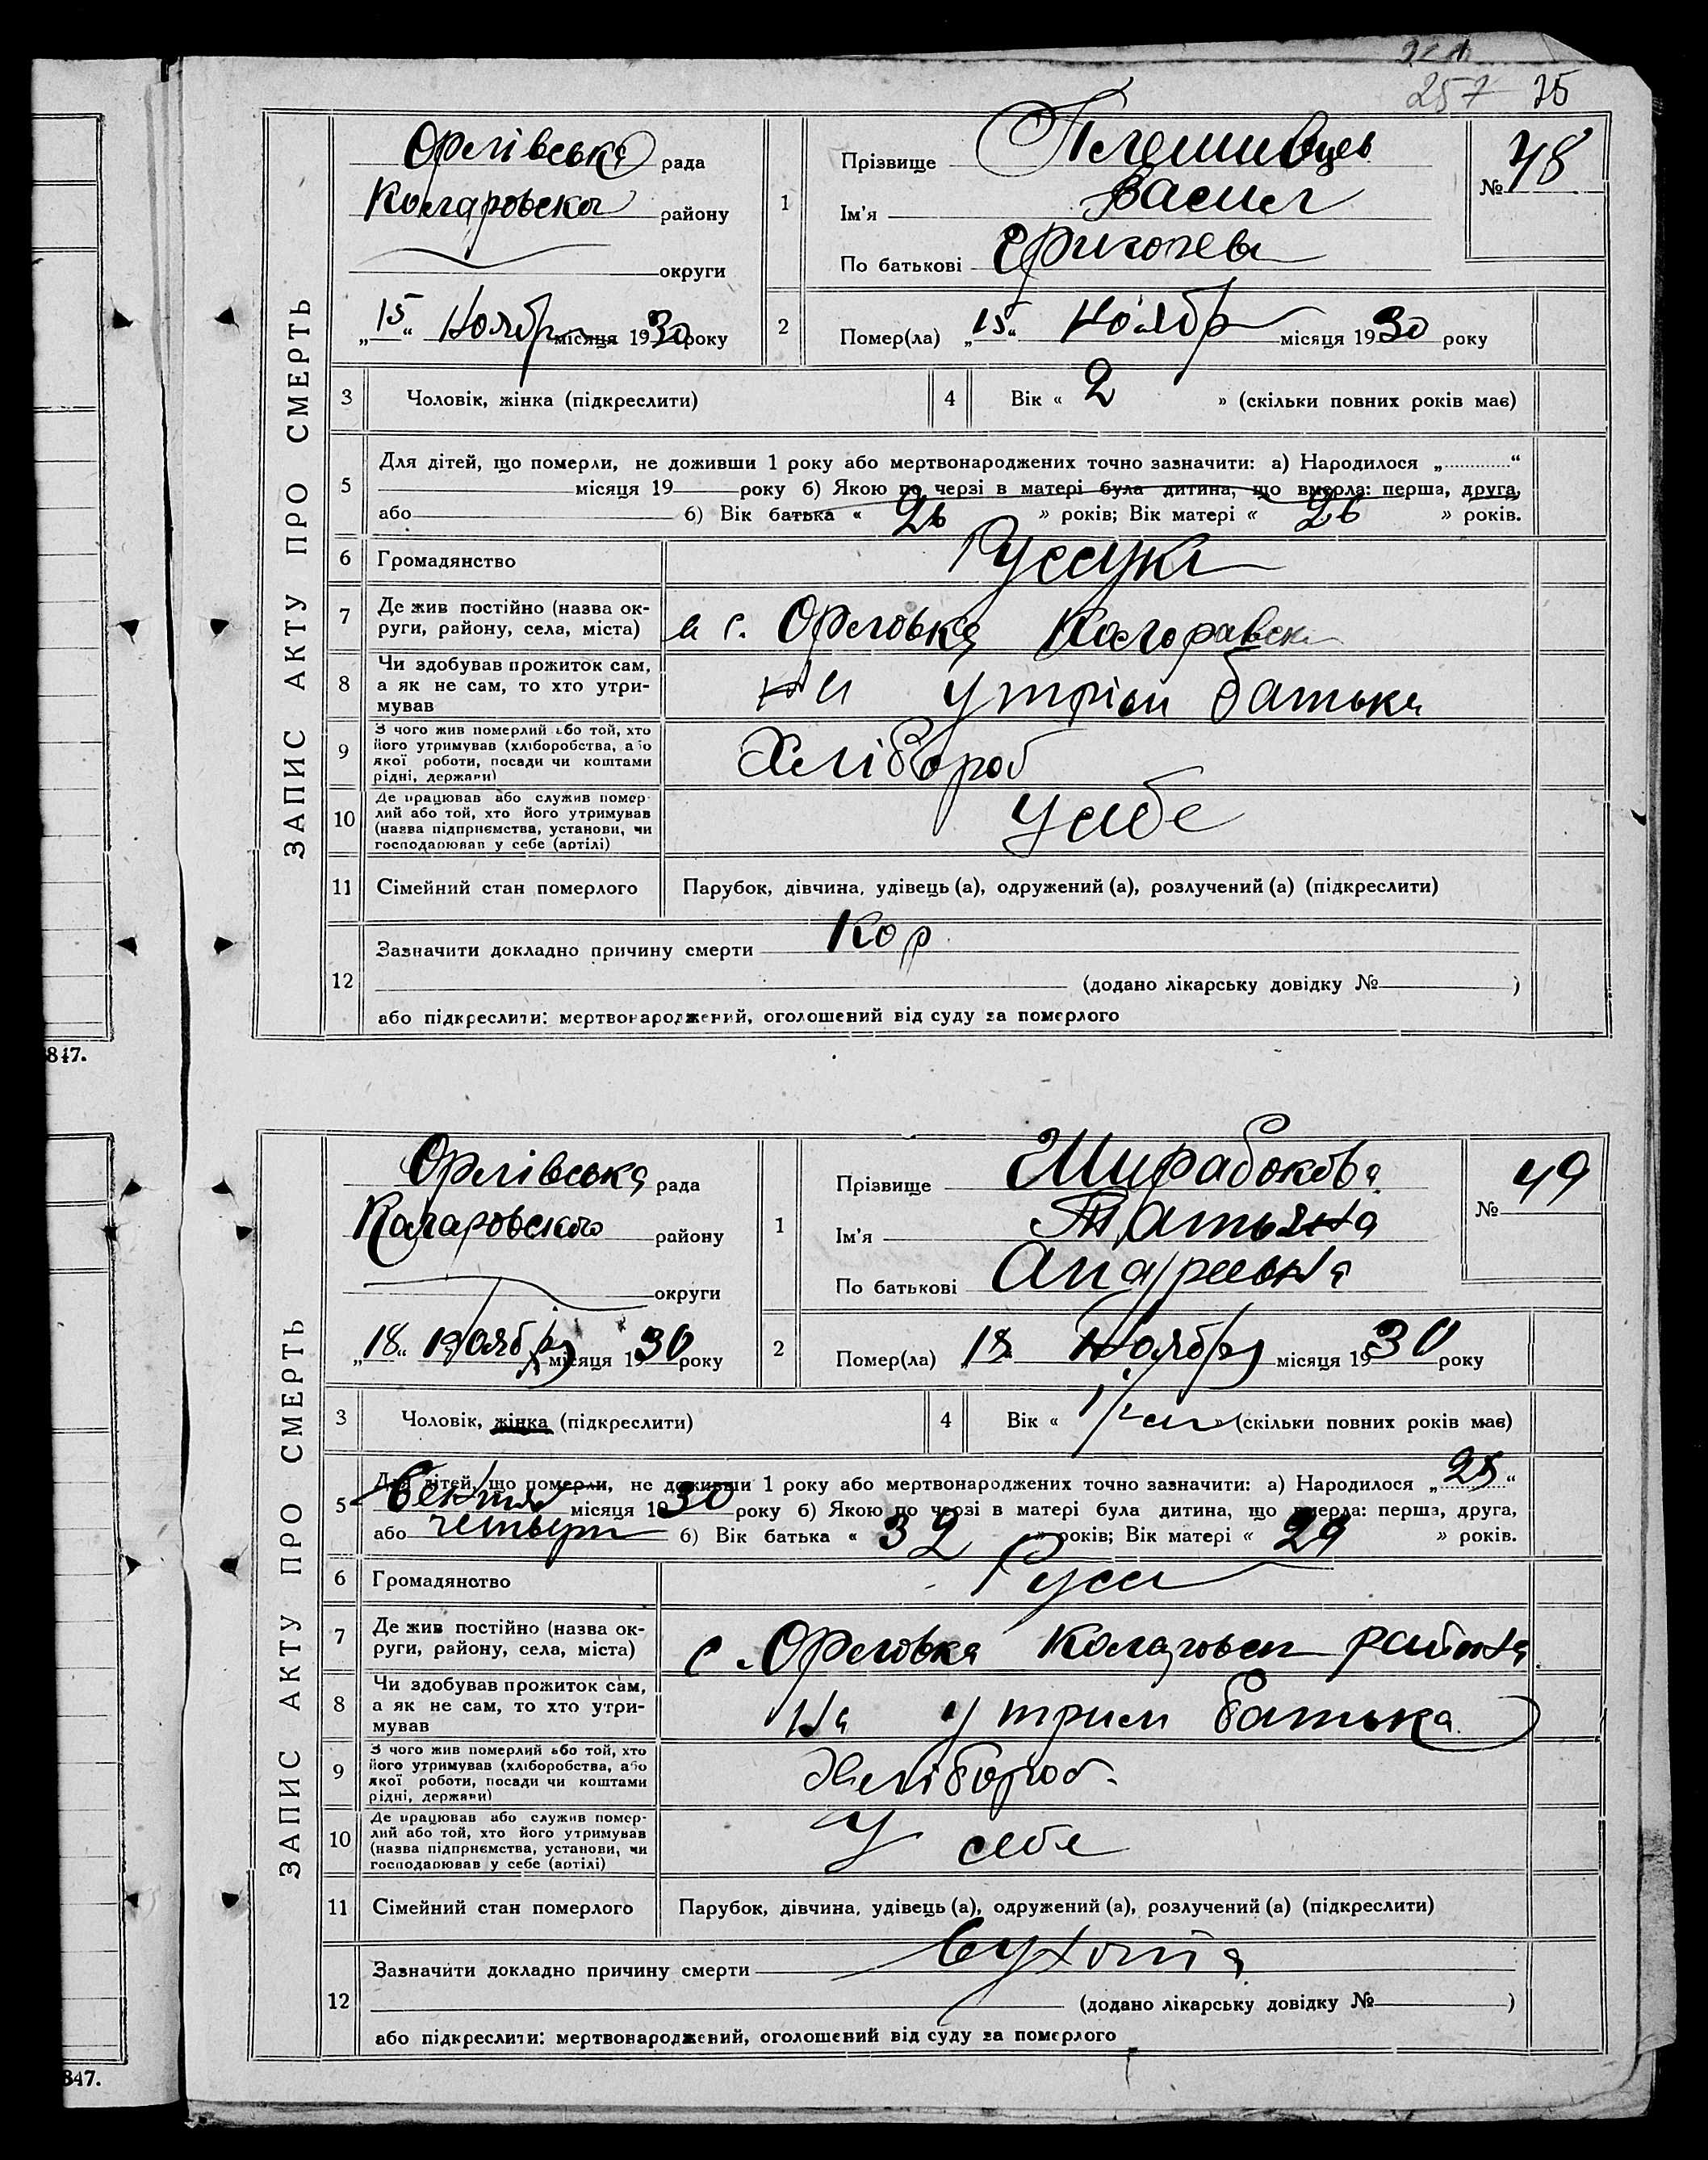 257 75
ЗАПИС АКТУ ПРО СМЕРТЬ
Орлівська рада
района
району
округи
„15“ Ноябр місяця 1930 року
1
Прізвище
Ім'я Васил
По батькові
№ 48
2
Помер(ла) „15“ Ноябр місяця 1930 року
3
Чоловік, жінка (підкреслити)
4
Вік « 2 » (скільки повних років має)
5
Для дітей, що померли, не доживши 1 року або мертвонароджених точно зазначити: а) Народилося „ “
місяця 19 року б) Якою по черзі в матері була дитина, що вмерла: перша, друга,
або б) Вік батька « 26 » років; Вік матері « 26 » років.
6
Громадянство
7
Де жив постійно (назва ок-
руги, району, села, міста)
с. Орловка
8
Чи здобував прожиток сам,
а як не сам, то хто утри-
мував
утрим батька
9
З чого жив померлий або той, хто
його утримував (хліборобства, або
якої роботи, посади чи коштами
рідні, держави)
Хлібороб
10
Де працював або служив помер-
лий або той, хто його утримував
(назва підприємства, установи, чи
господарював у себе (артілі)
У себе
11
Сімейний стан померлого
Парубок, дівчина, удівець (а), одружений (а), розлучений (а) (підкреслити)
12
Зазначити докладно причину смерти Кор
(додано лікарську довідку № )
або підкреслити: мертвонароджений, оголошений від суду за померлого
847.
ЗАПИС АКТУ ПРО СМЕРТЬ
Орлівська рада
Коларовского району
округи
„18“ Ноября місяця 1930 року
1
Прізвище Ширабокова
Ім'я Татьяна
По батькові Андреевна
№ 49
2
Помер(ла) „18“ Ноября місяця 1930 року
3
Чоловік, жінка (підкреслити)
4
Вік « » (скільки повних років має)
5
Для дітей, що померли, не доживши 1 року або мертвонароджених точно зазначити: а) Народилося „25“
Сентяб місяця 1930 року б) Якою по черзі в матері була дитина, що вмерла: перша, друга,
або четверт б) Вік батька « 32 » років; Вік матері « 29 » років.
6
Громадянство
Русс
7
Де жив постійно (назва ок-
руги, району, села, міста)
с. Орловка района
8
Чи здобував прожиток сам,
а як не сам, то хто утри-
мував
На утрим батька
9
З чого жив померлий або той, хто
його утримував (хліборобства, або
якої роботи, посади чи коштами
рідні, держави)
Хлібороб
10
Де працював або служив помер-
лий або той, хто його утримував
(назва підприємства, установи, чи
господарював у себе (артілі)
У себе
11
Сімейний стан померлого
Парубок, дівчина, удівець (а), одружений (а), розлучений (а) (підкреслити)
12
Зазначити докладно причину смерти
(додано лікарську довідку № )
або підкреслити: мертвонароджений, оголошений від суду за померлого
847.